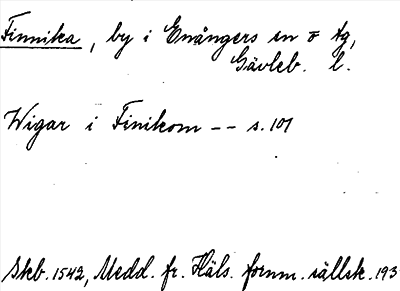 Finnika, by i Enångers sn o tg,
Gävleb. l.
Wigar i Finikom -- s. 101
Skb. 1542, Medd. fr. Häls. fornm. sällsk. 193